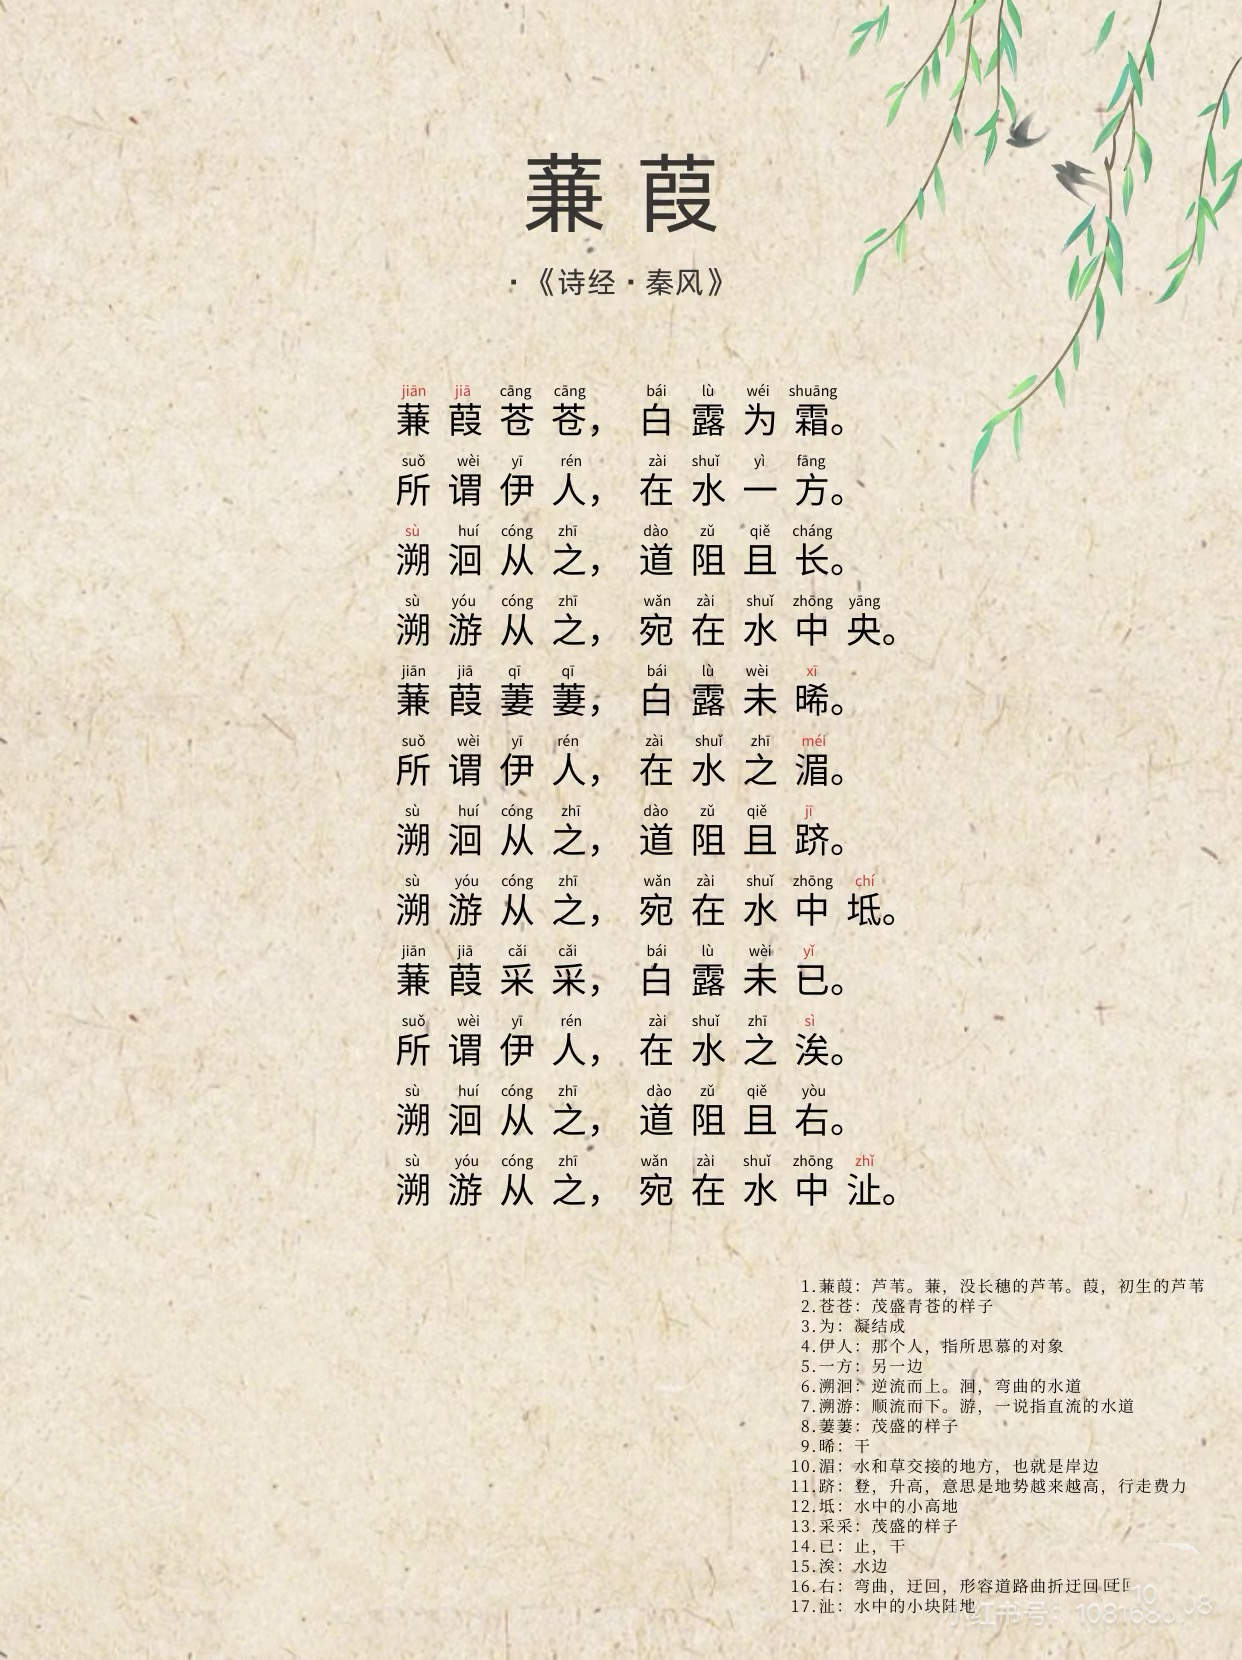 蒹葭
·《诗经·秦风》
jiān jiā cāng cāng bái lù wéi shuāng
蒹葭苍苍，白露为霜。
suǒ wèi yī rén zài shuǐ yì fāng
所谓伊人，在水一方。
sù huí cóng zhī dào zǔ qiě cháng
溯洄从之，道阻且长。
sù yóu cóng zhī wǎn zài shuǐ zhōng yāng
溯游从之，宛在水中央。
jiān jiā qī qī bái lù wèi xī
蒹葭萋萋，白露未晞。
suǒ wèi yī rén zài shuǐ zhī méi
所谓伊人，在水之湄。
sù huí cóng zhī dào zǔ qiě jī
溯洄从之，道阻且跻。
sù yóu cóng zhī wǎn zài shuǐ zhōng chí
溯游从之，宛在水中坻。
jiān jiā cǎi cǎi bái lù wèi yǐ
蒹葭采采，白露未已。
suǒ wèi yī rén zài shuǐ zhī sì
所谓伊人，在水之涘。
sù huí cóng zhī dào zǔ qiě yòu
溯洄从之，道阻且右。
sù yóu cóng zhī wǎn zài shuǐ zhōng zhǐ
溯游从之，宛在水中沚。
1.蒹葭：芦苇。蒹，没长穗的芦苇。葭，初生的芦苇
2.苍苍：茂盛青苍的样子
3.为：凝结成
4.伊人：那个人，指所思慕的对象
5.一方：另一边
6.溯洄：逆流而上。洄，弯曲的水道
7.溯游：顺流而下。游，一说指直流的水道
8.萋萋：茂盛的样子
9.晞：干
10.湄：水和草交接的地方，也就是岸边
11.跻：登，升高，意思是地势越来越高，行走费力
12.坻：水中的小高地
13.采采：茂盛的样子
14.已：止，干
15.涘：水边
16.右：弯曲，迂回，形容道路曲折迂回
17.沚：水中的小块陆地
小红书号：